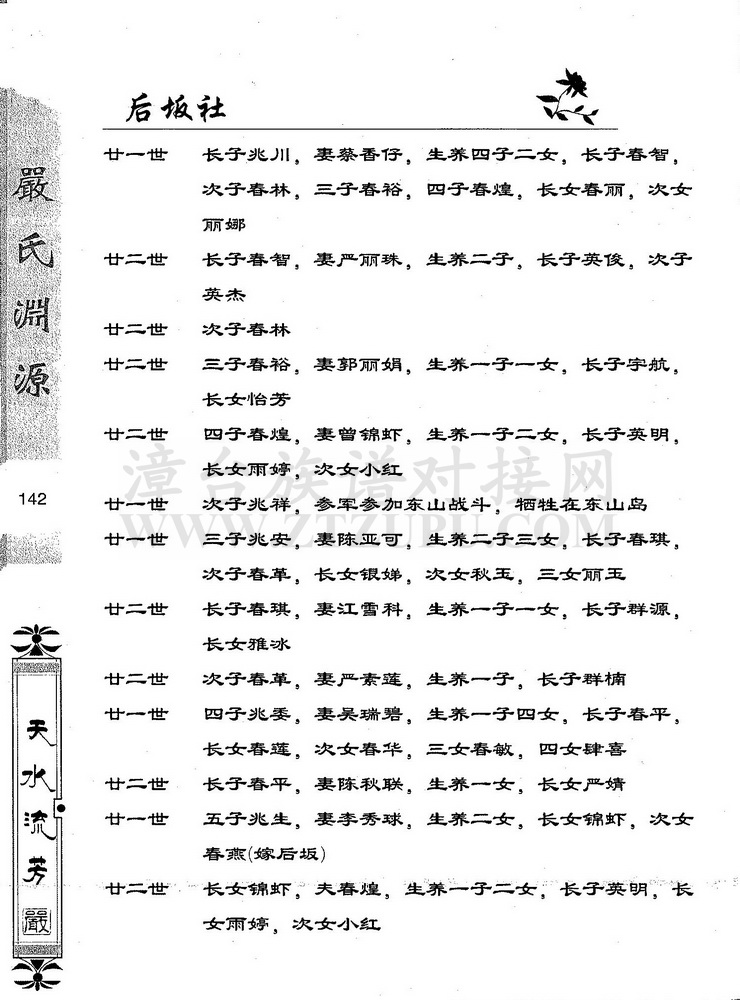 后坂社
廿一世 长子兆川，妻蔡香仔，生养四子二女，长子春智，
次子春林，三子春裕，四子春煌，长女春丽，次女
丽娜
廿二世 长子春智，妻严丽珠，生养二子，长子英俊，次子
英杰
廿二世 次子春林
廿二世 三子春裕，妻郭丽娟，生养一子一女，长子宇航，
长女怡芳
廿二世 四子春煌，妻曾锦虾，生养一子二女，长子英明，
长女雨婷，次女小红
廿一世 次子兆祥，参军参加东山战斗，牺牲在东山岛
廿一世 三子兆安，妻陈亚可，生养二子三女，长子春琪，
次子春革，长女银娣，次女秋玉，三女丽玉
廿二世 长子春琪，妻江雪科，生养一子一女，长子群源，
长女雅冰
廿二世 次子春革，妻严素莲，生养一子，长子群楠
廿一世 四子兆委，妻吴瑞碧，生养一子四女，长子春平，
长女春莲，次女春华，三女春敏，四女肆喜
廿二世 长子春平，妻陈秋联，生养一女，长女严婧
廿一世 五子兆生，妻李秀球，生养二女，长女锦虾，次女
春燕(嫁后坂)
廿二世 长女锦虾，夫春煌，生养一子二女，长子英明，长
女雨婷，次女小红
嚴氏淵源
142
天水流芳
嚴
漳台族谱对接网
WWW.ZTZUPU.COM